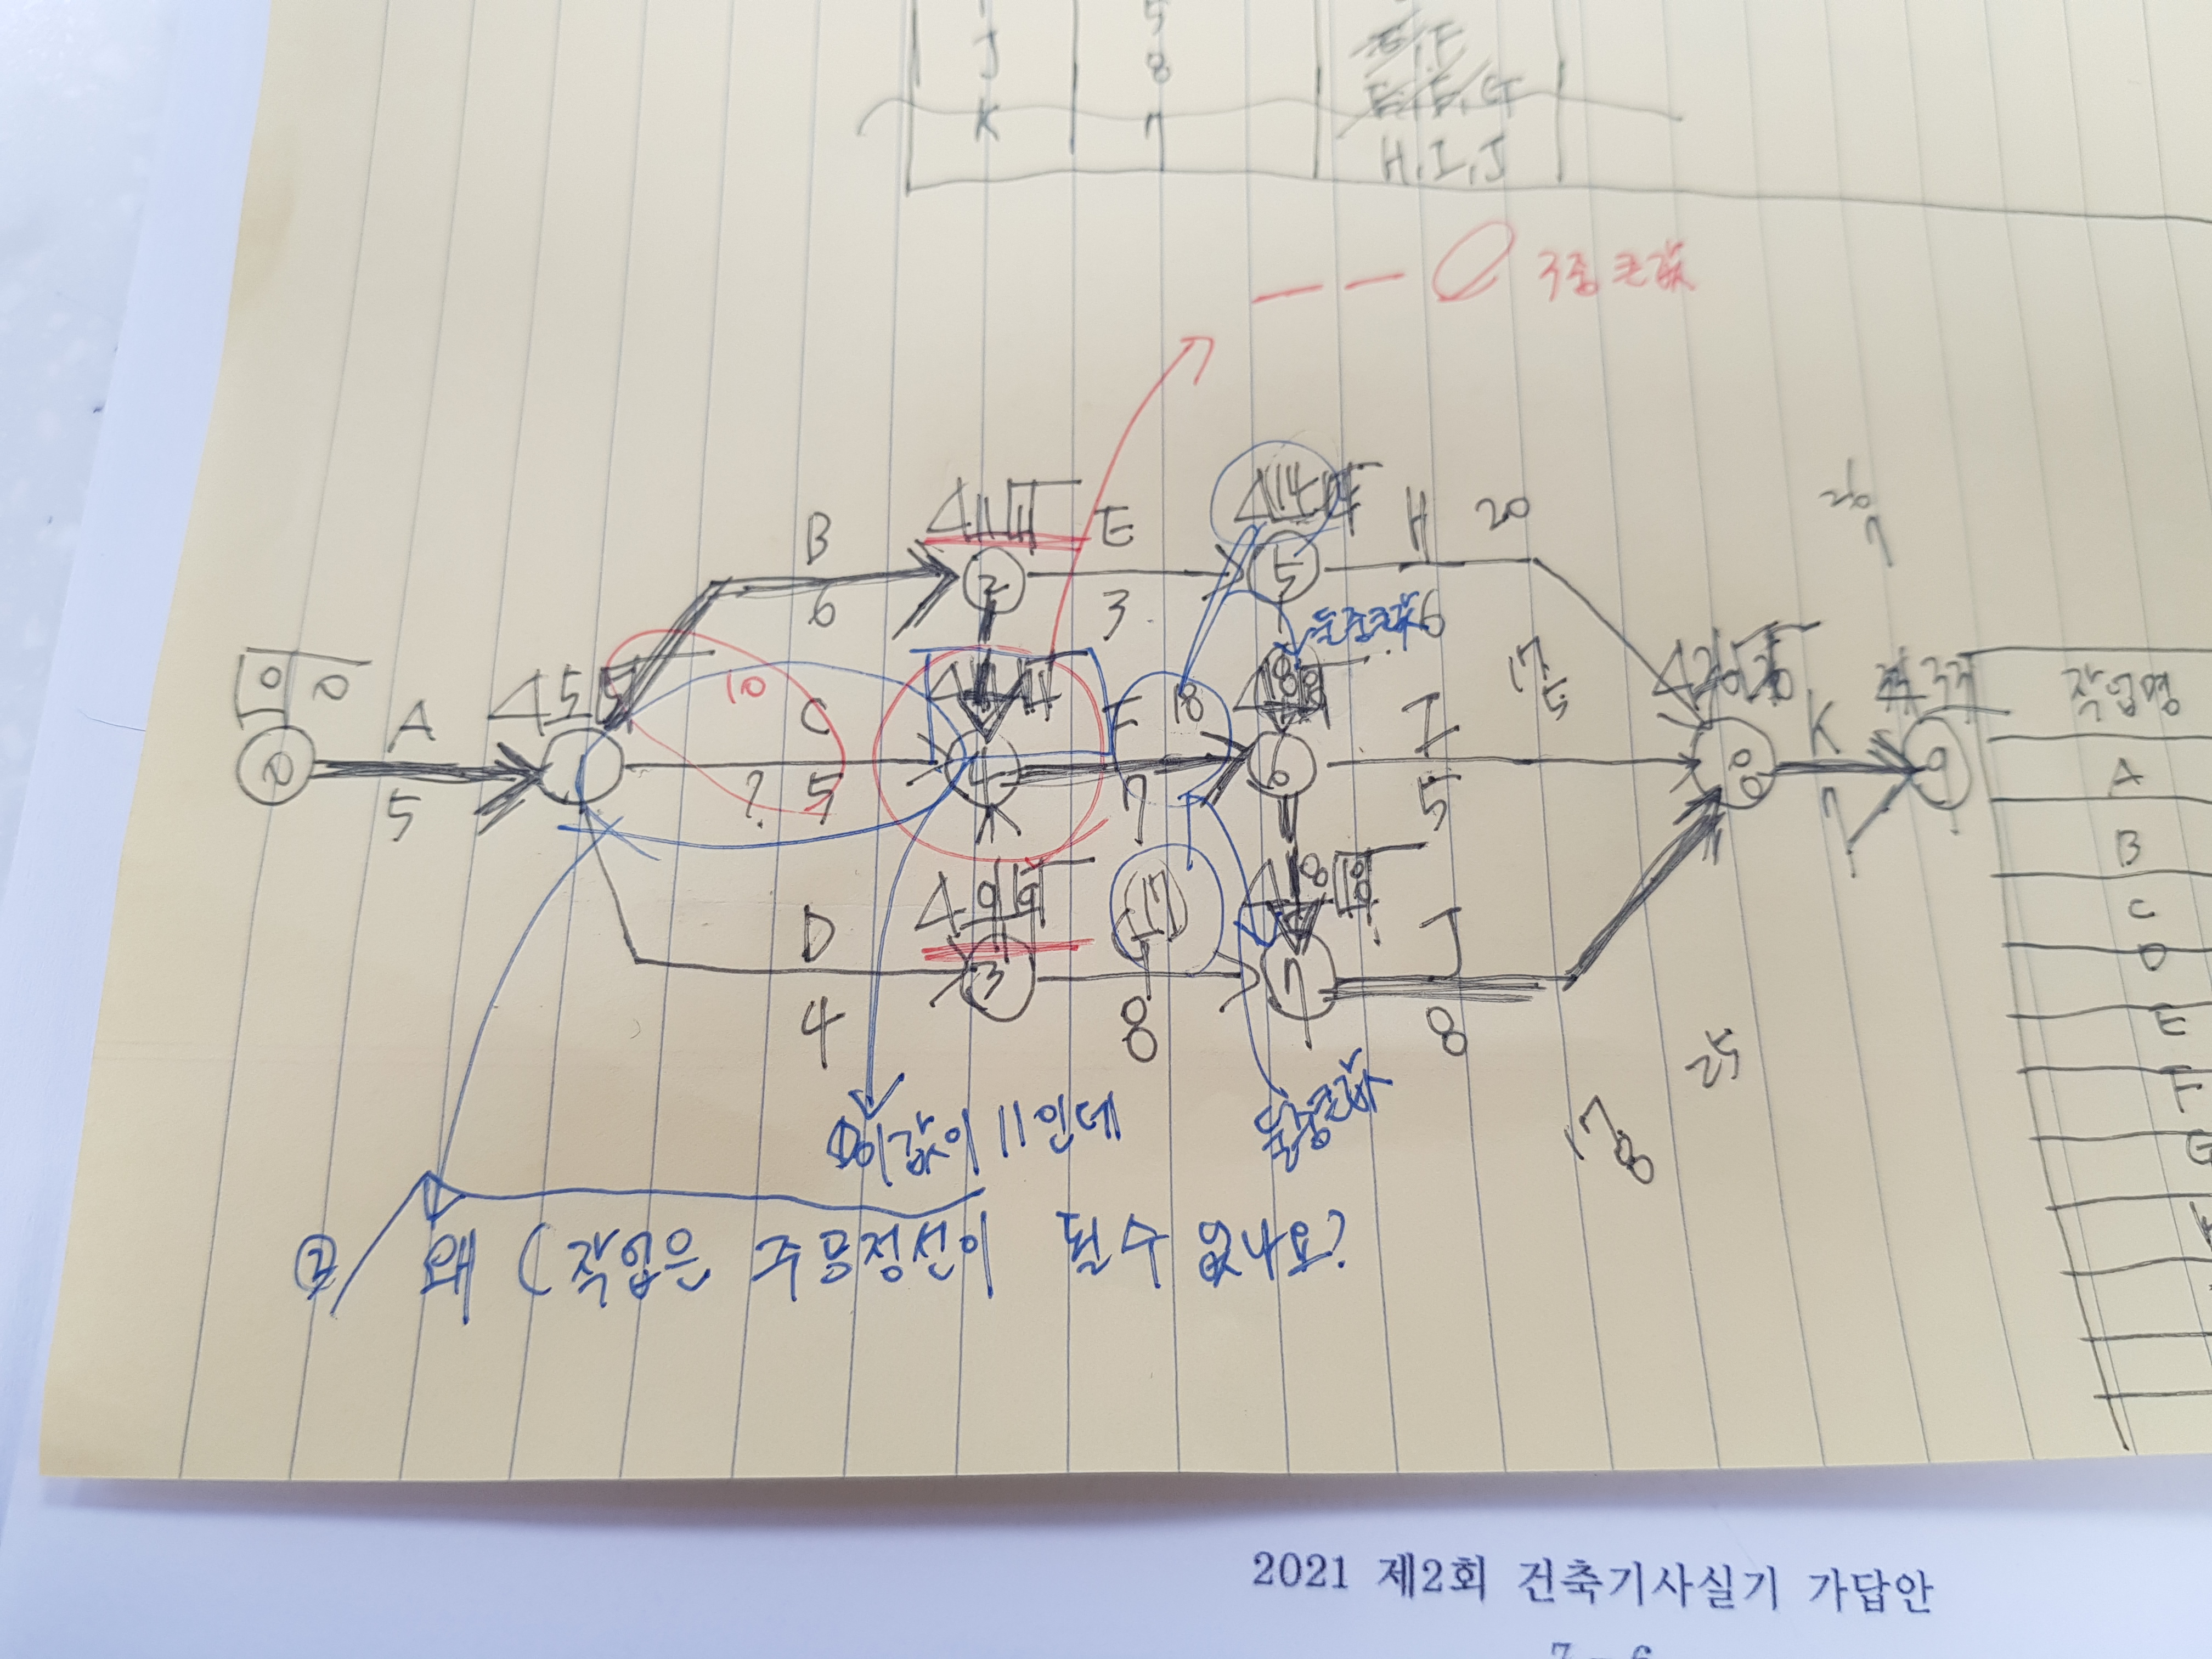 5
J 8
K 7 H, I, J
3중 큰값
B 6
E 3
H 20
6
0 0
A 5
5 5
10
C
? 5
F 7
18
둘중큰값
I 5
17
5
K 7
작업명
A
B
C
D
E
F
G
D 4
9 9
17
8
18 18
J 8
11 11
14 14
2
3
4
5
6
7
8
9
26
7
25
17
8
① 이값이 11인데
둘중큰값
② 왜 C 작업은 주공정선이 될수 없나요?
2021 제2회 건축기사실기 가답안
7 - 6